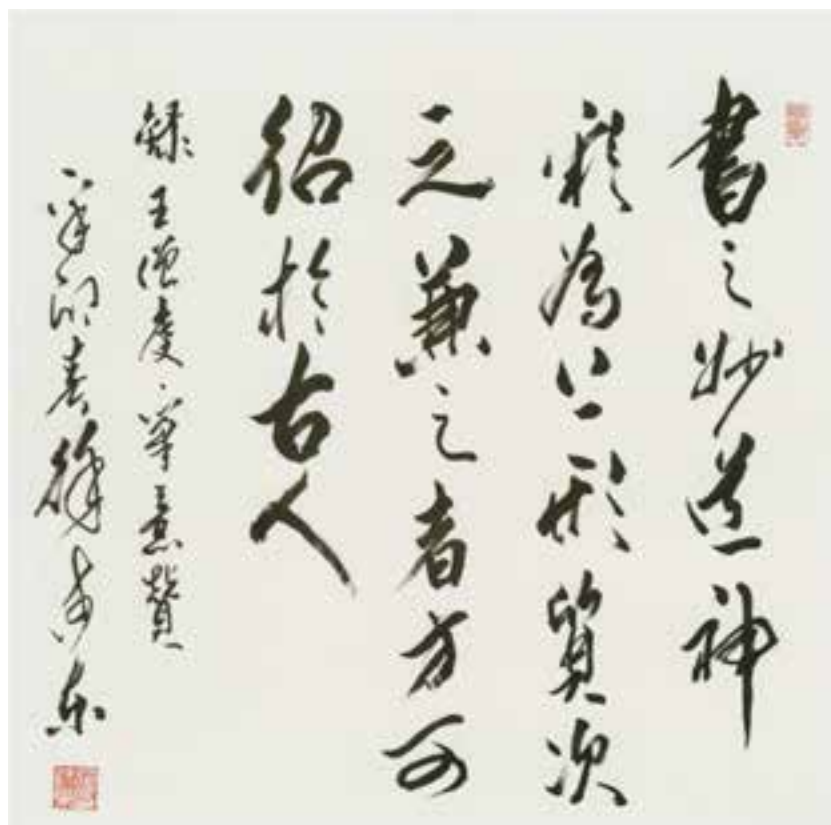 書之妙道神
彩為上形質次
之兼之者方可
紹於古人
錄王僧虔筆意贊
徐东